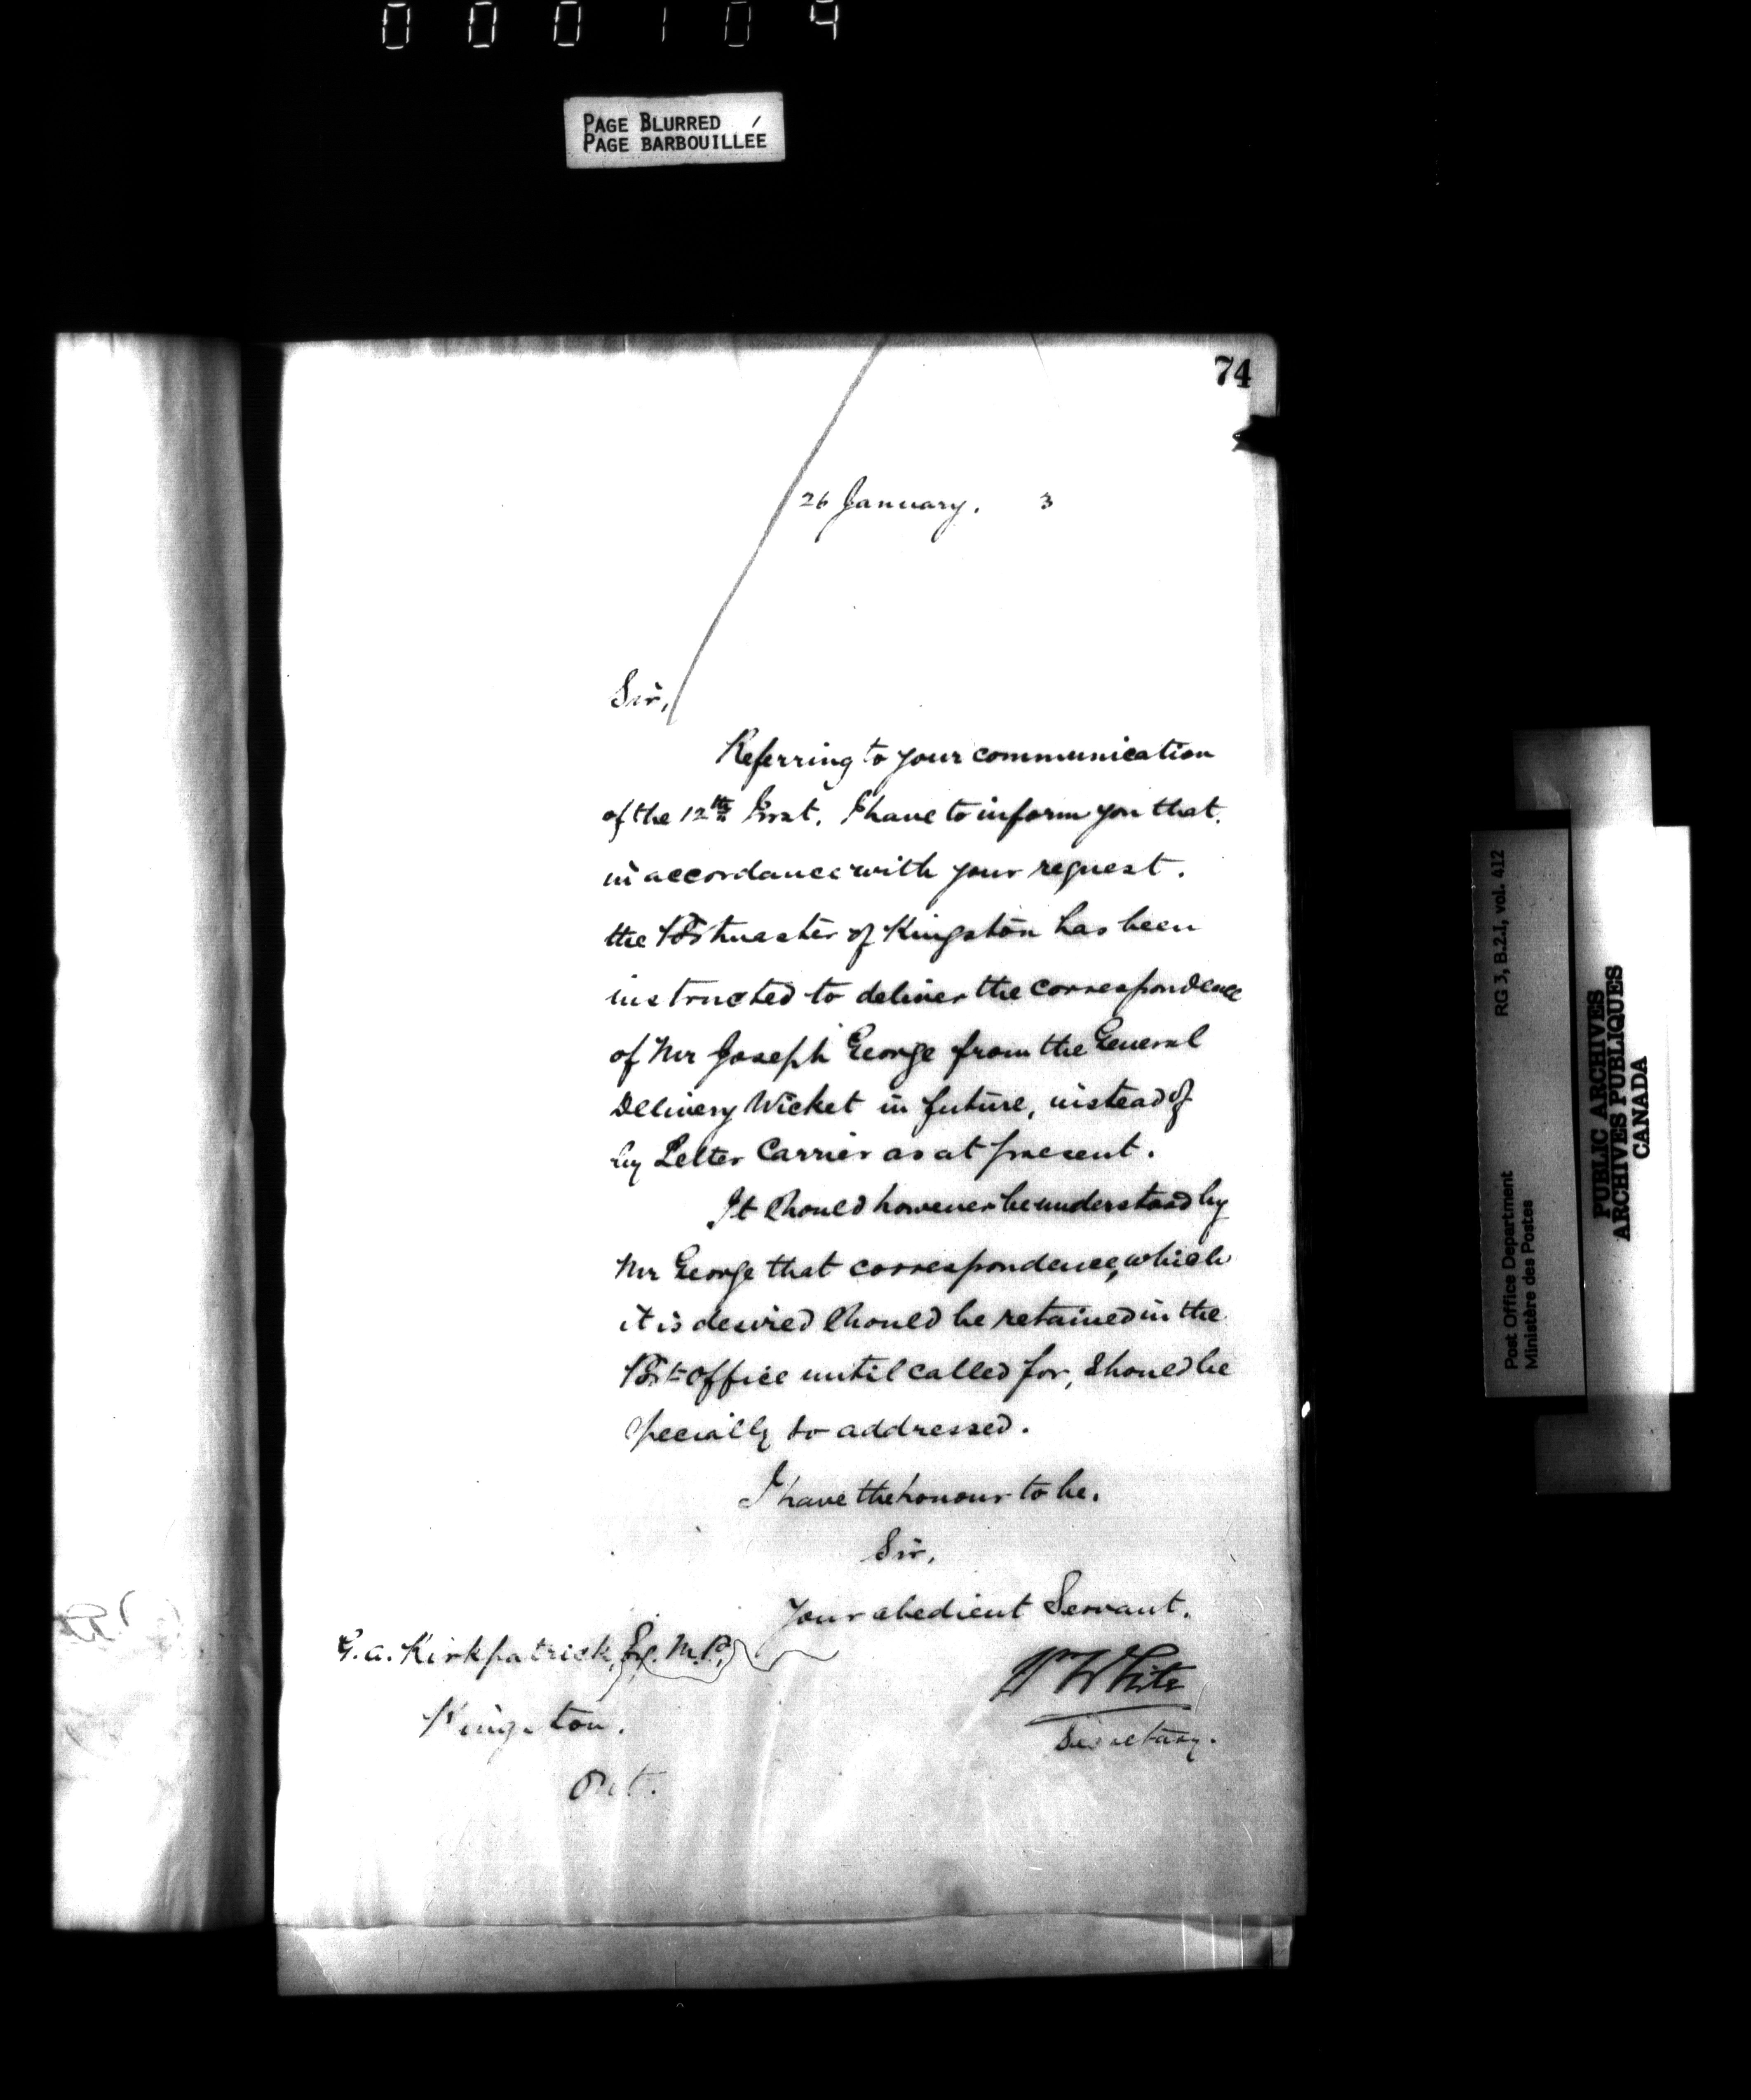 000104
PAGE BLURRED
PAGE BARBOUILLÉE
74
26 January. 3
Sir,
Referring to your communication
of the 12th Inst. I have to inform you that,
in accordance with your request.
the Postmaster of Kingston has been
instructed to deliver the correspondence
of Mr Joseph George from the General
Delivery Wicket in future, instead of
by Letter Carrier as at present.
It should however be understood by
Mr George that correspondence, which
it is desired should be retained in the
Post Office until called for, should be
specially so addressed.
I have the honour to be.
Sir,
Your obedient Servant.
G. A. Kirkpatrick, Esq. M.P.,
Wm White
Kingston.
Secretary.
Ont.
RG 3, B.2.I, vol. 412
Post Office Department
Ministère des Postes
PUBLIC ARCHIVES
ARCHIVES PUBLIQUES
CANADA